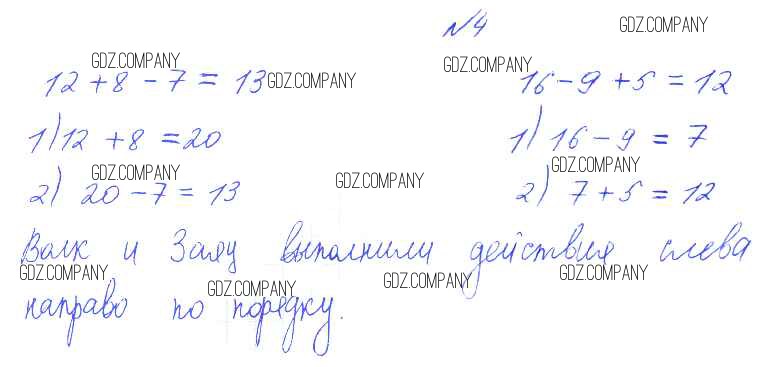 №4
GDZ.COMPANY
GDZ.COMPANY
12 + 8 - 7 = 13 GDZ.COMPANY
GDZ.COMPANY
16 - 9 + 5 = 12
1) 12 + 8 = 20
1) 16 - 9 = 7
GDZ.COMPANY
GDZ.COMPANY
GDZ.COMPANY
2) 20 - 7 = 13
2) 7 + 5 = 12
Волк и Заяц выполнили действия слева
GDZ.COMPANY
GDZ.COMPANY
GDZ.COMPANY
GDZ.COMPANY
направо по порядку.